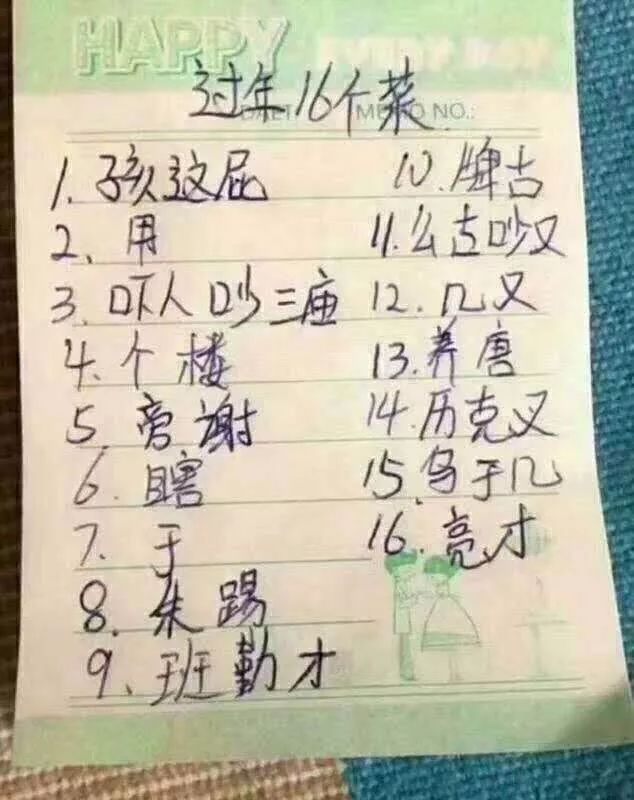 HAPPY EVERY DAY
过年16个菜
MEMO NO.:
1. 孩这屁
2、用
3. 吓人吵三庙
4. 个楼
5. 旁谢
6. 瞎
7. 于
8. 朱踢
9、班勤才
10. 牌古
11. 么古吵又
12. 几又
13. 养唐
14. 历克又
15. 乌于几
16. 亮才